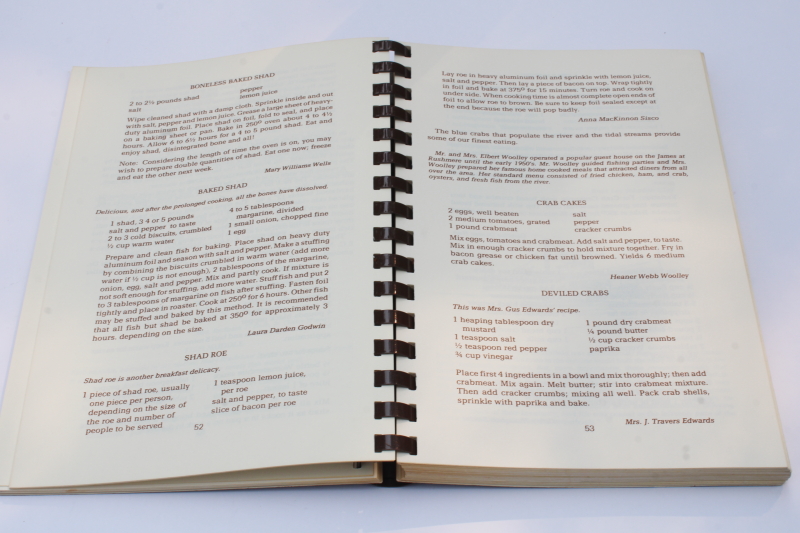 BONELESS BAKED SHAD
2 to 2½ pounds shad pepper
salt lemon juice
Wipe cleaned shad with a damp cloth. Sprinkle inside and out
with salt, pepper and lemon juice. Grease a large sheet of heavy-
duty aluminum foil. Place shad on foil, fold to seal, and place
on a baking sheet or pan. Bake in 250º oven about 4 to 4½
hours. Allow 6 to 6½ hours for a 4 to 5 pound shad. Eat and
enjoy shad, disintegrated bone and all!
Note: Considering the length of time the oven is on, you may
wish to prepare double quantities of shad. Eat one now; freeze
and eat the other next week.
Mary Williams Wells
BAKED SHAD
Delicious, and after the prolonged cooking, all the bones have dissolved.
1 shad, 3 4 or 5 pounds 4 to 5 tablespoons
salt and pepper to taste margarine, divided
2 to 3 cold biscuits, crumbled 1 small onion, chopped fine
½ cup warm water 1 egg
Prepare and clean fish for baking. Place shad on heavy duty
aluminum foil and season with salt and pepper. Make a stuffing
by combining the biscuits crumbled in warm water (add more
water if ½ cup is not enough), 2 tablespoons of the margarine,
onion, egg, salt and pepper. Mix and partly cook. If mixture is
not soft enough for stuffing, add more water. Stuff fish and put 2
to 3 tablespoons of margarine on fish after stuffing. Fasten foil
tightly and place in roaster. Cook at 250º for 6 hours. Other fish
may be stuffed and baked by this method. It is recommended
that all fish but shad be baked at 350º for approximately 3
hours, depending on the size.
Laura Darden Godwin
SHAD ROE
Shad roe is another breakfast delicacy.
1 piece of shad roe, usually 1 teaspoon lemon juice,
one piece per person, per roe
depending on the size of salt and pepper, to taste
the roe and number of slice of bacon per roe
people to be served
52
Lay roe in heavy aluminum foil and sprinkle with lemon juice,
salt and pepper. Then lay a piece of bacon on top. Wrap tightly
in foil and bake at 375º for 15 minutes. Turn roe and cook on
under side. When cooking time is almost complete open ends of
foil to allow roe to brown. Be sure to keep foil sealed except at
the end because the roe will pop badly.
Anna MacKinnon Sisco
The blue crabs that populate the river and the tidal streams provide
some of our finest eating.
Mr. and Mrs. Elbert Woolley operated a popular guest house on the James at
Rushmere until the early 1950's. Mr. Woolley guided fishing parties and Mrs.
Woolley prepared her famous home cooked meals that attracted diners from all
over the area. Her standard menu consisted of fried chicken, ham, and crab,
oysters, and fresh fish from the river.
CRAB CAKES
2 eggs, well beaten salt
2 medium tomatoes, grated pepper
1 pound crabmeat cracker crumbs
Mix eggs, tomatoes and crabmeat. Add salt and pepper, to taste.
Mix in enough cracker crumbs to hold mixture together. Fry in
bacon grease or chicken fat until browned. Yields 6 medium
crab cakes.
Heaner Webb Woolley
DEVILED CRABS
This was Mrs. Gus Edwards' recipe.
1 heaping tablespoon dry 1 pound dry crabmeat
mustard ¼ pound butter
1 teaspoon salt ½ cup cracker crumbs
½ teaspoon red pepper paprika
¾ cup vinegar
Place first 4 ingredients in a bowl and mix thoroughly; then add
crabmeat. Mix again. Melt butter; stir into crabmeat mixture.
Then add cracker crumbs; mixing all well. Pack crab shells,
sprinkle with paprika and bake.
Mrs. J. Travers Edwards
53